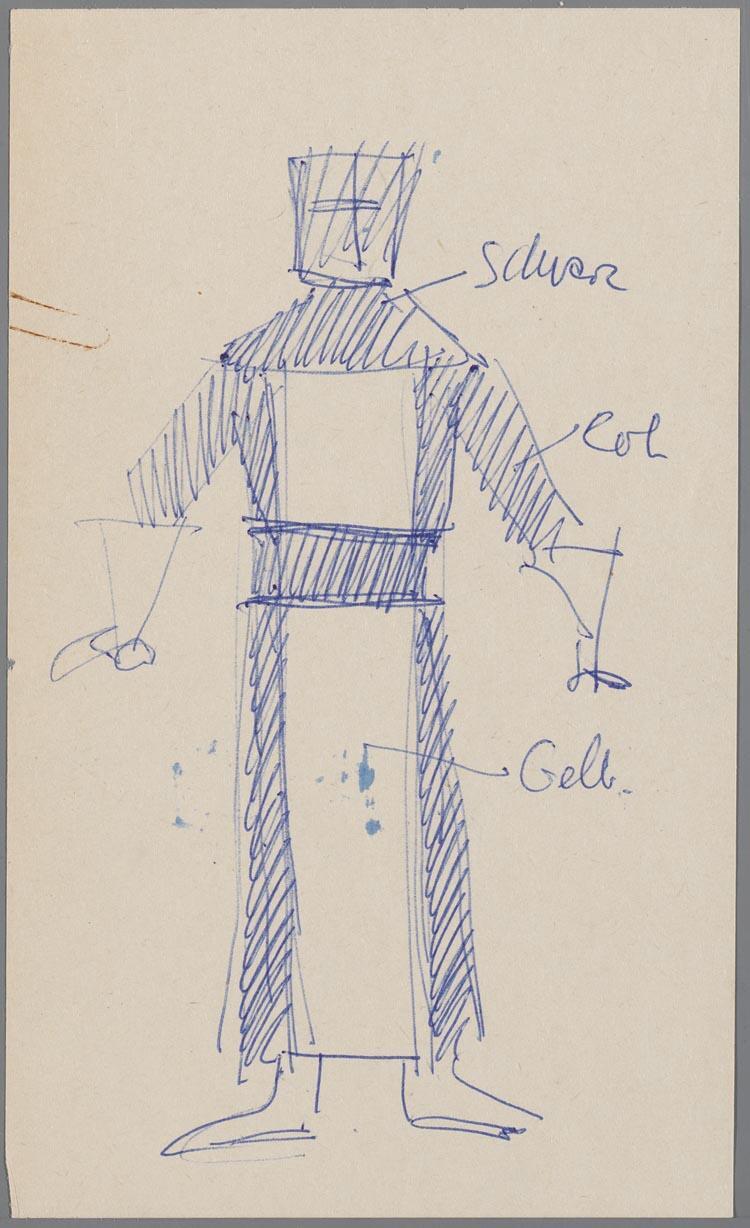 Schwarz
Rot
Gelb.